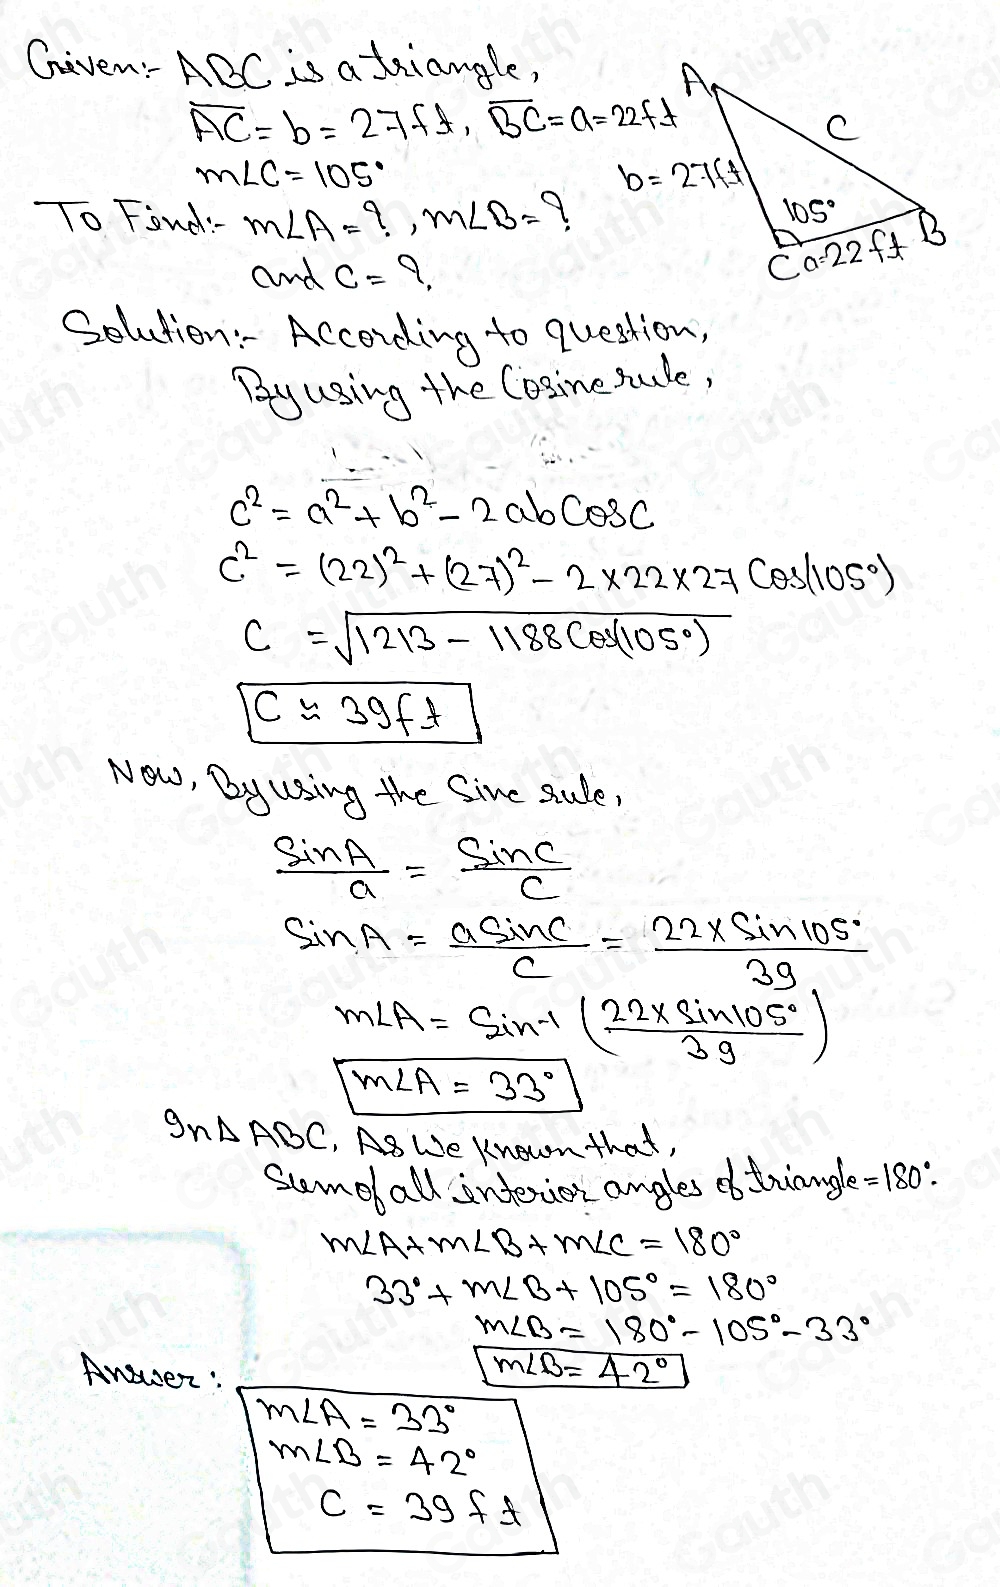 Given:- ABC is a triangle,
AC = b = 27ft, BC = a = 22ft
m∠C = 105°
To Find:- m∠A = ?, m∠B = ?
and c = ?
A
c
b = 27ft
105°
B
C a=22ft
Solution:- According to question,
By using the Cosine rule,
c² = a² + b² - 2ab Cos C
c² = (22)² + (27)² - 2×22×27 Cos(105°)
c = √1213 - 1188 Cos(105°)
c ≈ 39ft
Now, By using the Sine rule,
Sin A / a = Sin C / c
Sin A = a Sin C / c = 22 × Sin 105° / 39
m∠A = Sin-1 (22 × Sin 105° / 39)
m∠A = 33°
In Δ ABC, As We Known that,
Sum of all interior angles of triangle = 180°.
m∠A + m∠B + m∠C = 180°
33° + m∠B + 105° = 180°
m∠B = 180° - 105° - 33°
m∠B = 42°
Answer:
m∠A = 33°
m∠B = 42°
c = 39ft
Gauth